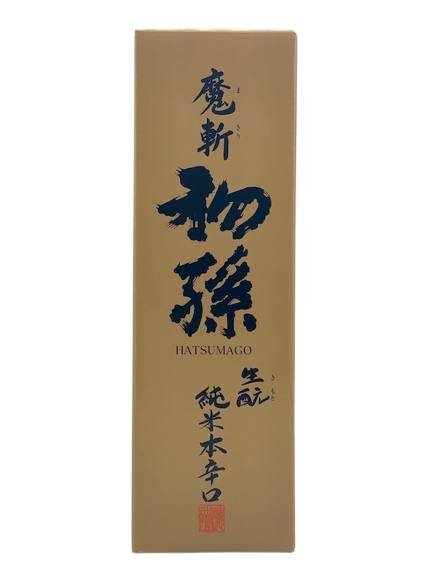 魔斬
まきり
初孫
HATSUMAGO
生酛
きもと
純米本辛口